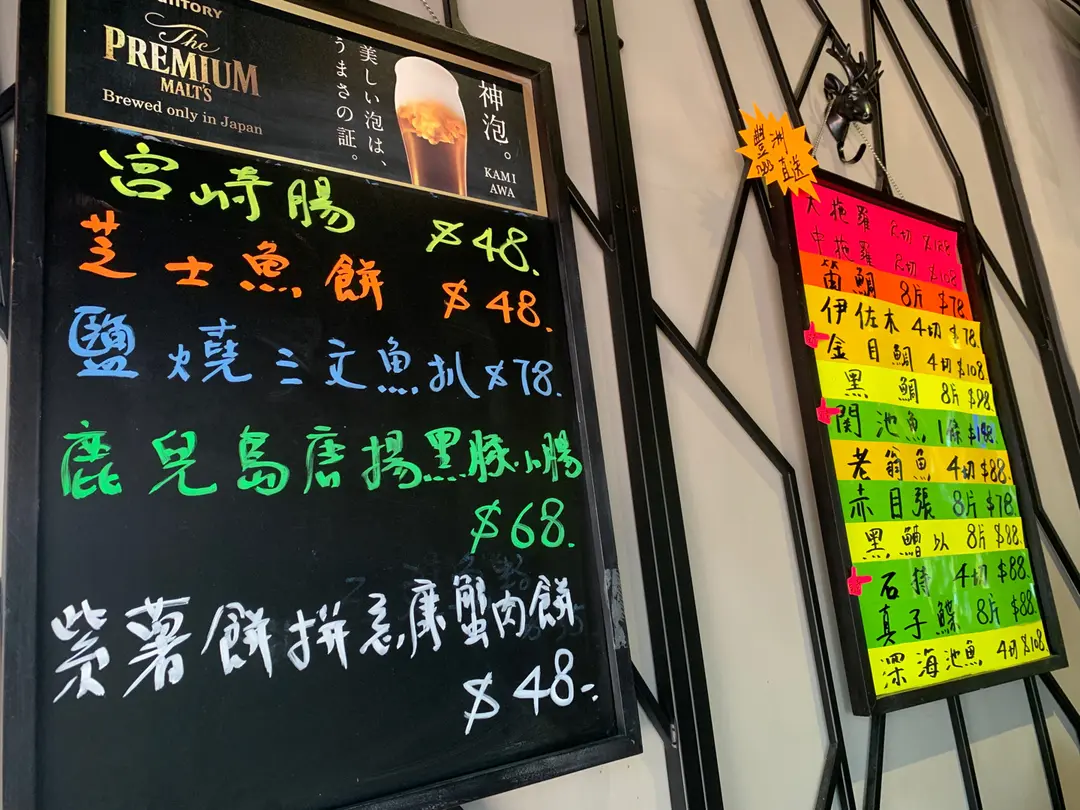 SUNTORY
The
PREMIUM
MALT'S
Brewed only in Japan
美しい泡は、
うまさの証。
神泡。
KAMI
AWA
宮崎腸 $48.
芝士魚餅 $48.
鹽燒三文魚扒 $78.
鹿兒島唐揚黑豚小腸
$68.
紫薯餅拼意康蟹肉餅
$48-
豐洲
直送
大拖羅 尺切 $128
中拖羅 尺切 $108
笛鯛 8片 $78.
伊佐木 4切 $78.
金目鯛 4切 $108
黑鯛 8片 $98.
関池魚 1條
老翁魚 4切 $88.
赤目張 8片 $78.
黑鰽以 8片 $88
石 4切 $88.
真子鰈 8片 $88.
深海池魚 4切 $108.